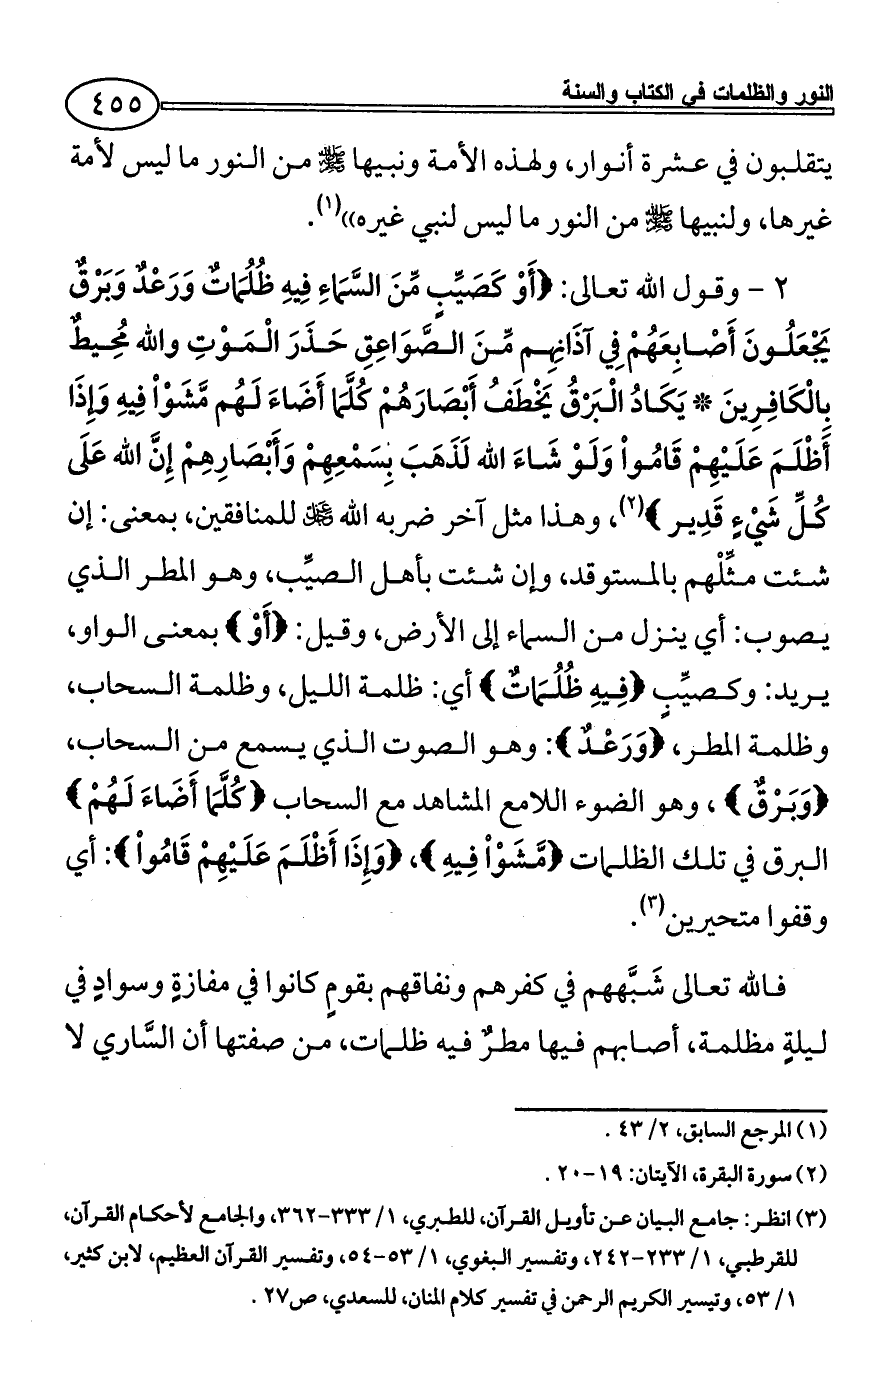 النور والظلمات في الكتاب والسنة
٤٥٥
يتقلبون في عشرة أنوار، ولهذه الأمة ونبيها ﷺ من النور ما ليس لأمة
غيرها، ولنبيها ﷺ من النور ما ليس لنبي غيره»(١).
٢ - وقول الله تعالى: ﴿أَوْ كَصَيِّبٍ مِّنَ السَّمَاءِ فِيهِ ظُلُمَاتٌ وَرَعْدٌ وَبَرْقٌ
يَجْعَلُونَ أَصْابِعَهُمْ فِي آذَانِهِم مِّنَ الصَّوَاعِقِ حَذَرَ الْمَوْتِ والله مُحِيطٌ
بِالْكَافِرِينَ * يَكَادُ الْبَرْقُ يَخْطَفُ أَبْصَارَهُمْ كُلَّمَا أَضَاءَ لَهُم مَّشَوْاْ فِيهِ وَإِذَا
أَظْلَمَ عَلَيْهِمْ قَامُواْ وَلَوْ شَاءَ الله لَذَهَبَ بِسَمْعِهِمْ وَأَبْصَارِهِمْ إِنَّ الله عَلَى
كُلِّ شَيْءٍ قَدِير﴾(٢)، وهذا مثل آخر ضربه الله ﷻ للمنافقين، بمعنى: إن
شئت مثِّلْهم بالمستوقد، وإن شئت بأهل الصيِّب، وهو المطر الذي
يصوب: أي ينزل من السماء إلى الأرض، وقيل: ﴿أَوْ﴾ بمعنى الواو،
يريد: وكصيِّبٍ ﴿فِيهِ ظُلُمَاتٌ﴾ أي: ظلمة الليل، وظلمة السحاب،
وظلمة المطر، ﴿وَرَعْدٌ﴾: وهو الصوت الذي يسمع من السحاب،
﴿وَبَرْقٌ﴾، وهو الضوء اللامع المشاهد مع السحاب ﴿كُلَّمَا أَضَاءَ لَهُمْ﴾
البرق في تلك الظلمات ﴿مَّشَوْاْ فِيهِ﴾، ﴿وَإِذَا أَظْلَمَ عَلَيْهِمْ قَامُواْ﴾: أي
وقفوا متحيرين(٣).
فالله تعالى شَبَّههم في كفرهم ونفاقهم بقومٍ كانوا في مفازةٍ وسوادٍ في
ليلةٍ مظلمة، أصابهم فيها مطرٌ فيه ظلمات، من صفتها أن السَّاري لا
(١) المرجع السابق، ٢/ ٤٣ .
(٢) سورة البقرة، الآيتان: ١٩-٢٠ .
(٣) انظر: جامع البيان عن تأويل القرآن، للطبري، ١/ ٣٣٣-٣٦٢، والجامع لأحكام القرآن،
للقرطبي، ١/ ٢٣٣-٢٤٢، وتفسير البغوي، ١/ ٥٣-٥٤، وتفسير القرآن العظيم، لابن كثير،
١/ ٥٣، وتيسير الكريم الرحمن في تفسير كلام المنان، للسعدي، ص٢٧ .